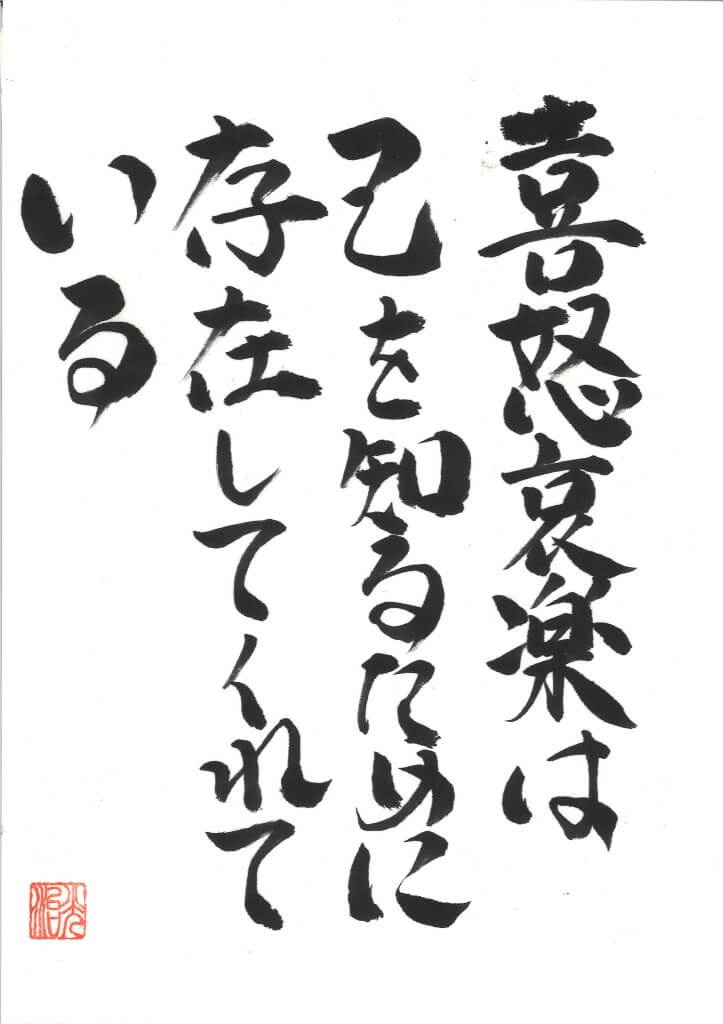 喜怒哀楽は
己を知るために
存在してくれて
いる